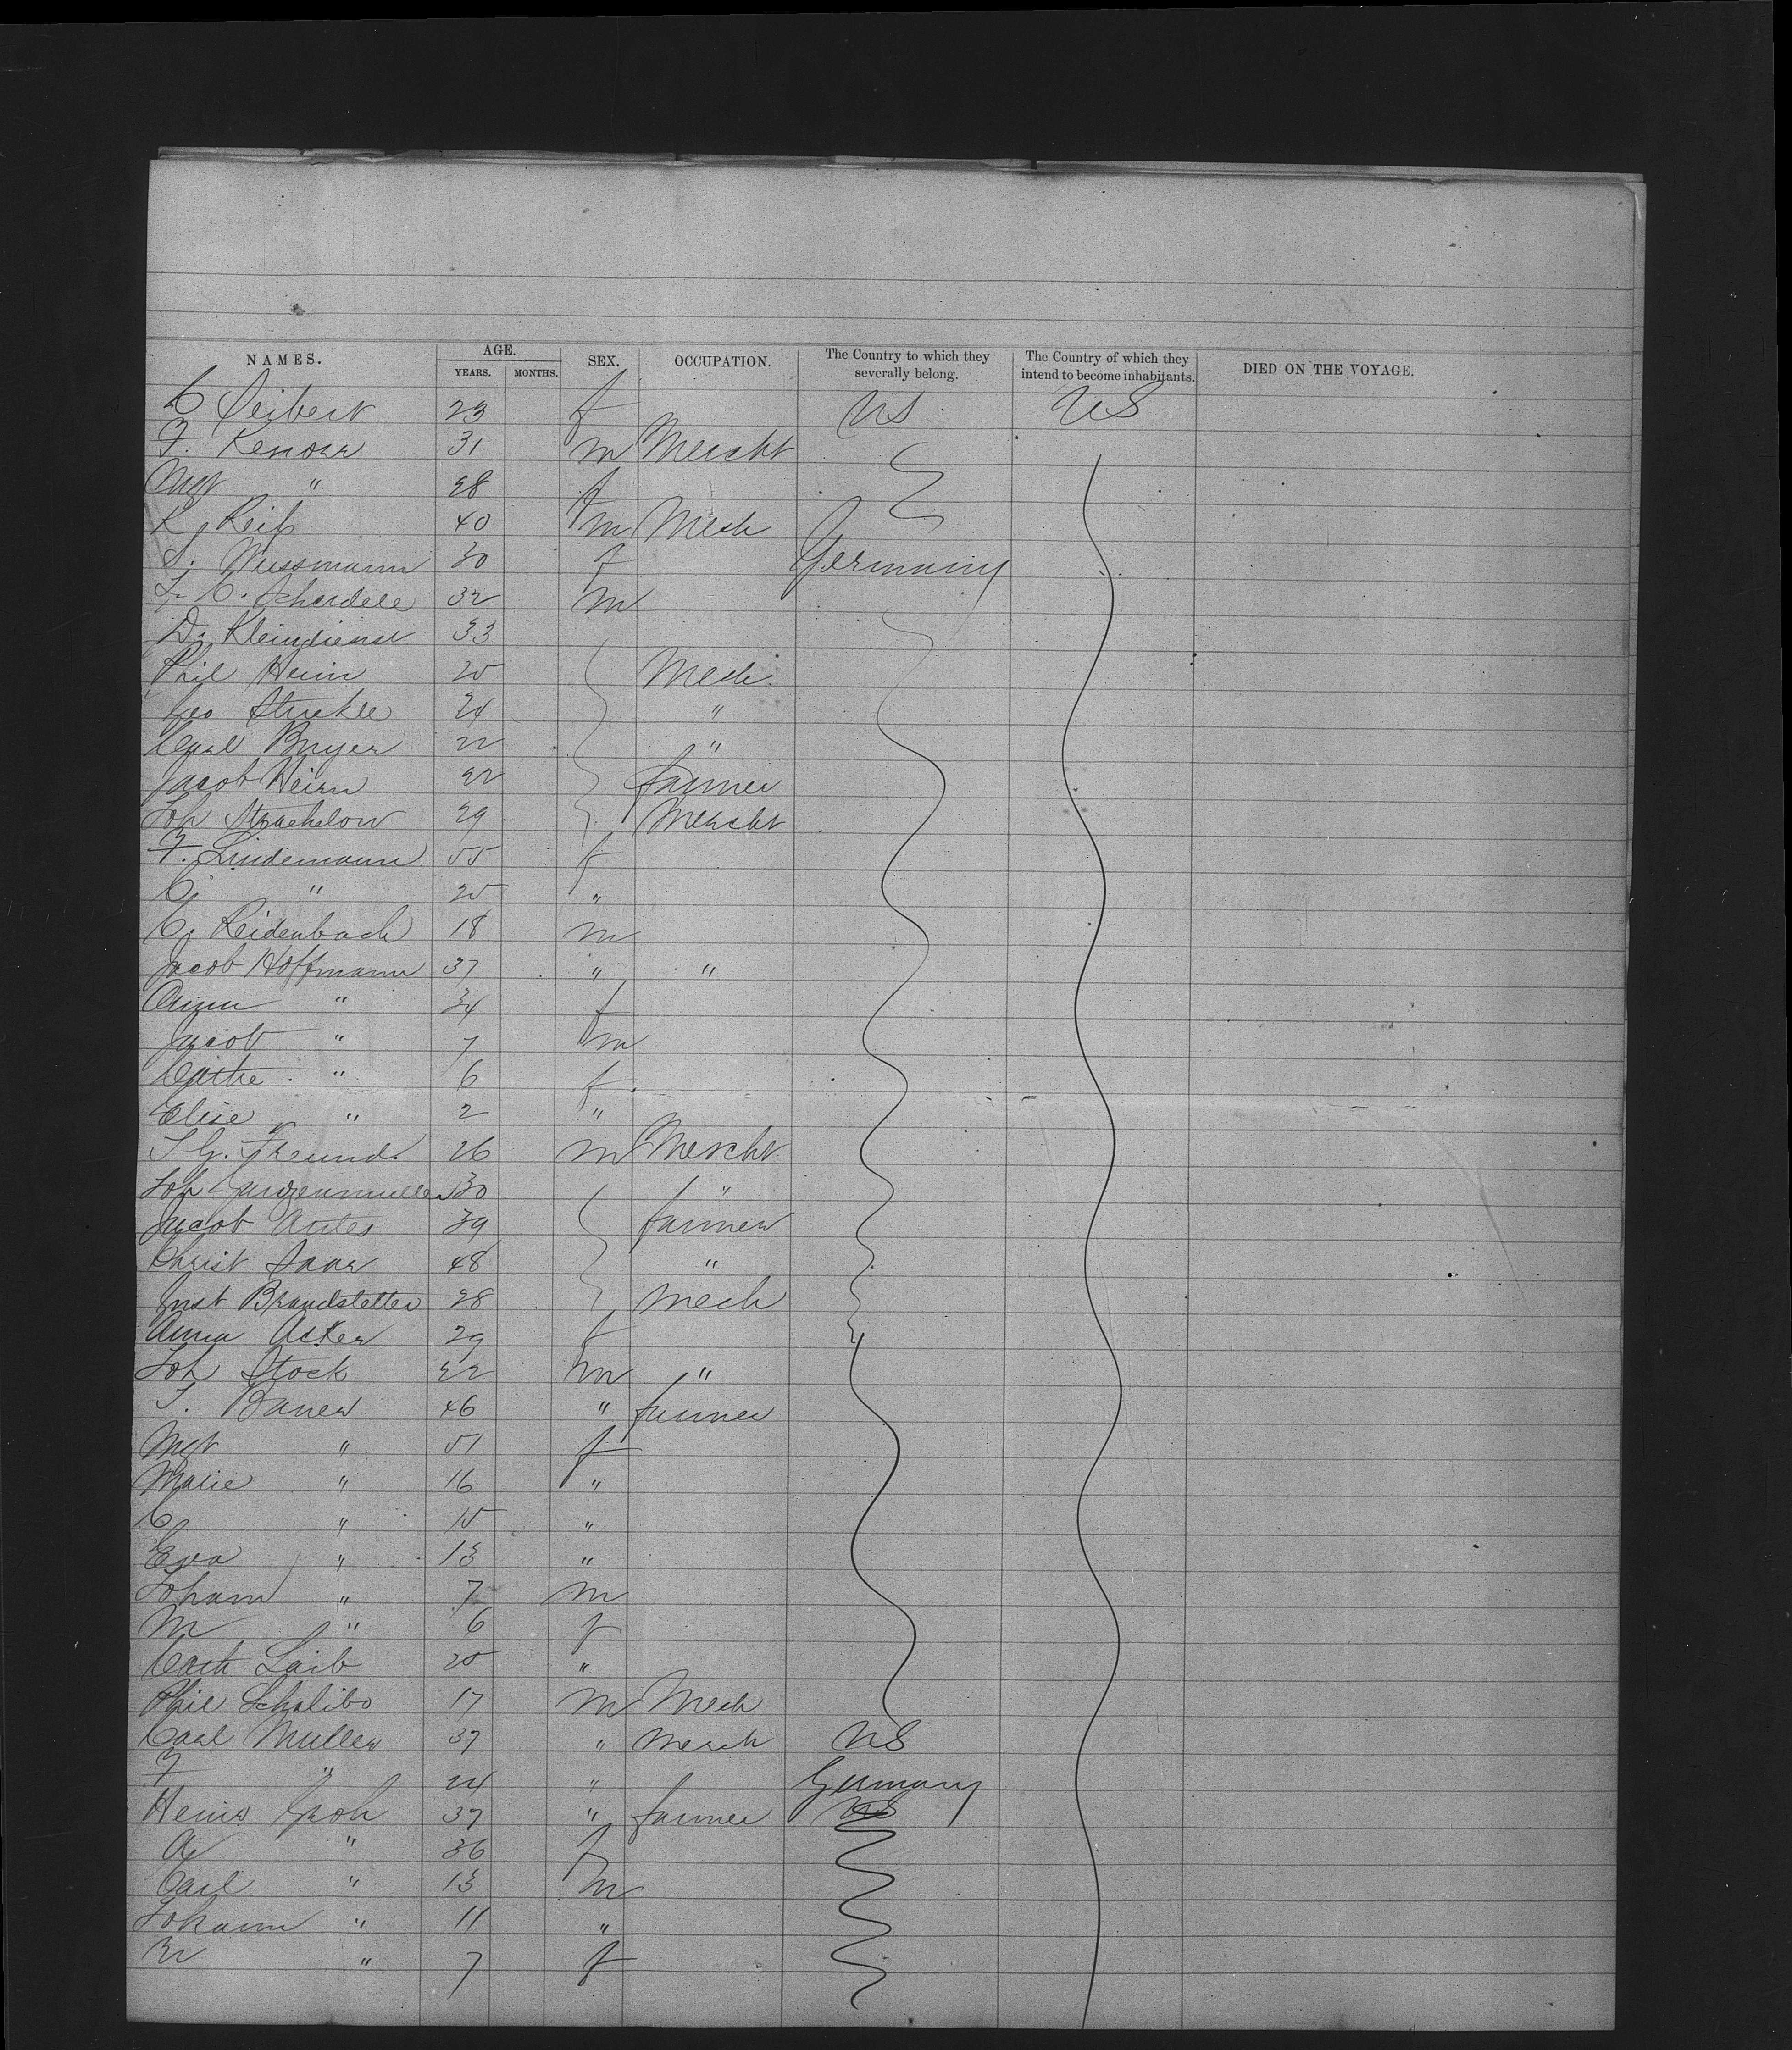 NAMES. AGE. SEX. OCCUPATION. The Country to which they severally belong. The Country of which they intend to become inhabitants. DIED ON THE VOYAGE.
YEARS. MONTHS.
C Seibert 23 f US US
F. 31 m Mercht
Mgt " 28 f
K Reiß 40 m Mech
S. Wussmann 30 f Germany
F. C. Schardele 32 m
D. Kleindienst 33
Phil Heim 25 Mech
Geo Stuckle 24 "
Carl Buyer 22 "
Jacob Heim 22 farmer
Joh 29 Mercht
F. Lindemann 55 f
C. " 25 "
C. Reidenbach 18 m
Jacob Hoffmann 37 " "
Anna " 34 f
Jacob " 7 m
Cathe. " 6 f
Elise " 2 "
J G. Freund. 26 m Mercht
Joh 30 "
Jacob Antes 39 farmer
Christ Saar 48 "
Just Brandstetter 28 Mech
Anna Acker 29 f
Joh Stock 22 m "
J. Bauer 46 " farmer
Mgt " 51 f
Marie " 16 "
C " 15 "
Eva " 13 "
Johann " 7 m
M " 6 f
Cath Laib 25 "
Phil Schalibo 17 m Mech
Carl Muller 37 " merch US
F " 24 " Germany
Heinr Groh 37 " farmer US
A " 36 f
Carl " 13 m
Johann " 11 "
M " 7 f